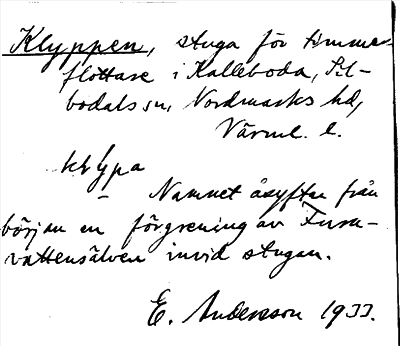 Klyppen, stuga för timmer-
flottare i Kalleboda, Sil-
bodals sn, Nordmarks hd,
Värml. l.
klypa
– Namnet åsyftar från
början en förgrening av
vattensälven invid stugan.
E. Andersson 1933.